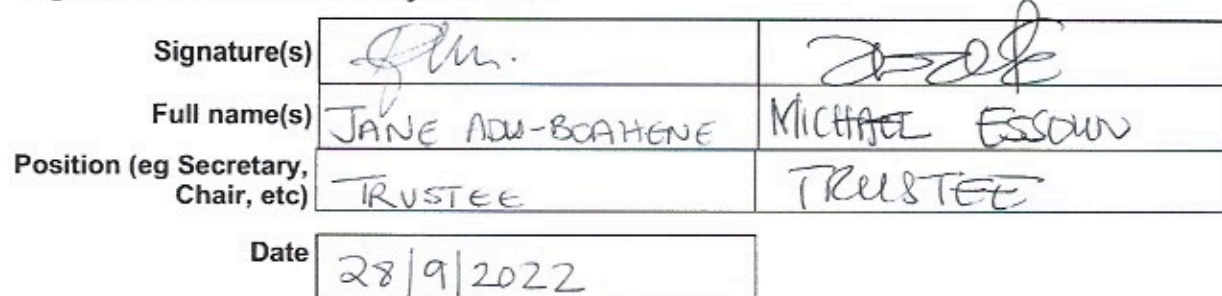 Signature(s)
Full name(s) JANE ADU-BOAHENE MICHAEL ESSOUN
Position (eg Secretary,
Chair, etc) TRUSTEE TRUSTEE
Date 28/9/2022